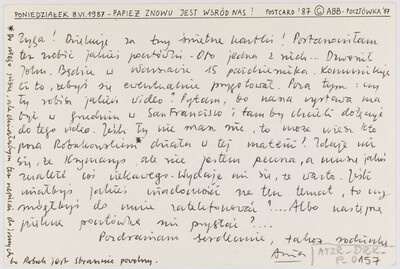 PONIEDZIAŁEK 8.VI.1987 - PAPIEŻ ZNOWU JEST WŚRÓD NAS! POSTCARD '87 © ABB - POCZTÓWKA '87
Zyga! Dziękuję za trzy świetne kartki! Postanowiłam
też zrobić jakieś pocztówki. Oto jedna z nich... Dzwonił
John. Będzie w Warszawie 15 października. Komunikuję
Ci to, żebyś się ewentualnie przygotował. Poza tym: czy
Ty robisz jakieś video? Pytam, bo nasza wystawa ma
być w grudniu w San Francisco i tam by chcieli dołączyć
do tego video. Jeśli Ty nie masz nic, to może wiesz kto
poza Robakowskim* działa w tej materii? Zdaje mi
się, że Krymarys ale nie jestem pewna, a muszę jakoś
znaleźć coś ciekawego. Wydaje mi się, że warto. Jeśli
miałbyś jakieś wiadomości na ten temat, to czy
mógłbyś do mnie zatelefonować?... Albo następną
piękną pocztówkę mi przysłać?...
Pozdrawiam serdecznie, także rodzinkę
Ania
ATZR-DZR-
P-0157
* Do niego piszę, ale chciałabym też
bo Robak jest strasznie powolny.